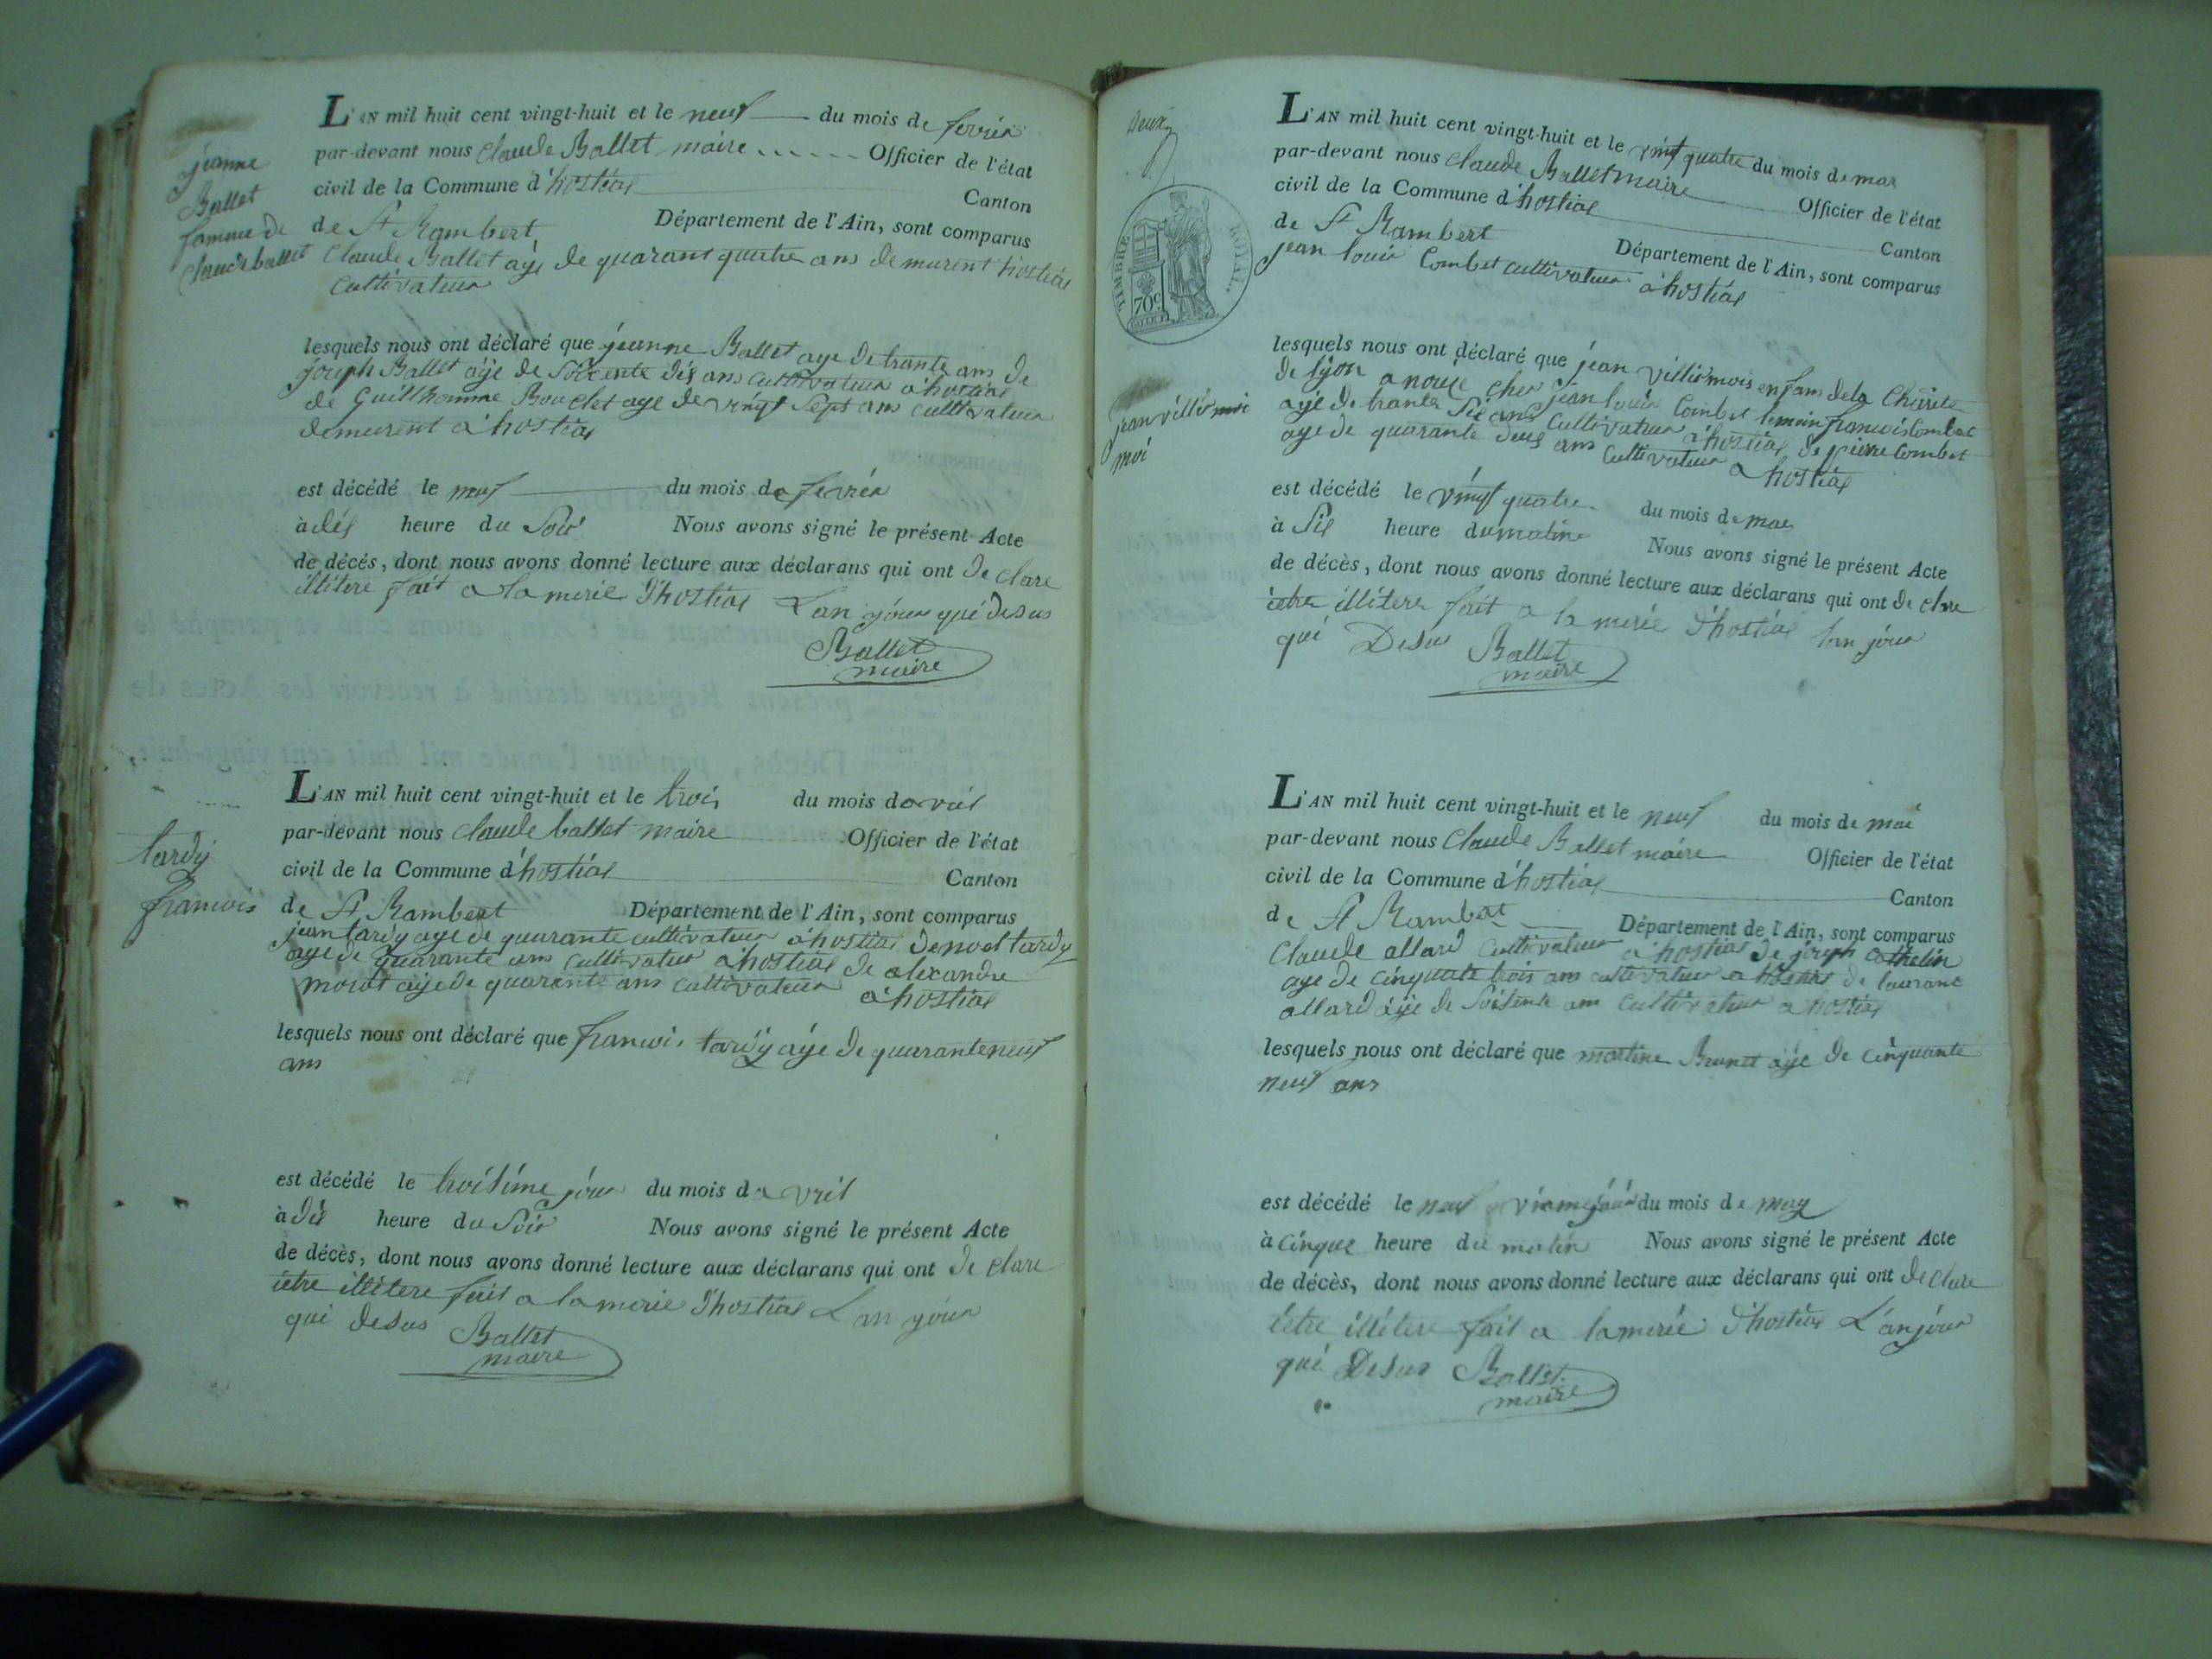 jeanne
Ballet
famme de
claude ballet
L'AN mil huit cent vingt-huit et le neuf du mois de fevrier
par-devant nous claude Ballet maire Officier de l'état
civil de la Commune d'hostias Canton
de St Rambert Département de l'Ain, sont comparus
Claude Ballet aÿe de quarant quatre ans demurent hostias
Cultivateur
lesquels nous ont déclaré que jeanne Ballet aye de trante ans de
joseph Ballet aÿe de Soixente dis ans Cultivateur a hostias
de Guillhomme Bouclet aye de vingt Sept ans Cultivateur
demurent a hostias
est décédé le neuf du mois de fevrier
à dis heure du Soir Nous avons signé le présent Acte
de décés, dont nous avons donné lecture aux déclarans qui ont de clare
illitere fait a la merie d'hostias Lan jour qué desus
Ballet
maire
tardÿ
francois
L'AN mil huit cent vingt-huit et le trois du mois d avril
par-devant nous claude ballet maire Officier de l'état
civil de la Commune d'hostias Canton
de St Rambert Département de l'Ain, sont comparus
jean tardy aye de quarante cultivateur a hostias de noel tardy
aye de quarante ans cultivateur a hostias de alexandre
morat aÿe de quarante ans cultivateur a hostias
lesquels nous ont déclaré que francois tardÿ aÿe de quarante neuf
ans
est décédé le troisime jour du mois d avril
à dis heure du Soir Nous avons signé le présent Acte
de décès, dont nous avons donné lecture aux déclarans qui ont de clare
ietre illitere fait a la merie d'hostias Lan jour
qui desus Ballet
maire
deux
TIMBRE ROYAL.
70c
L'AN mil huit cent vingt-huit et le vingt quatre du mois de mar
par-devant nous claude Ballet maire Officier de l'état
civil de la Commune d'hostias Canton
de St Rambert Département de l'Ain, sont comparus
jean louis Combet cultivateur a hostias
jean villir moi
moi
lesquels nous ont déclaré que jean villirmois enfans dela Charite
de lÿon a nouié cher jean louis Combet temoin francois Combet
aÿe de trante Sis ans Cultivateur a hostias de pierre Combet
aye de quarante deus ans Cultivateur a hostias
est décédé le vingt quatre du mois de mars
à Sis heure du matine Nous avons signé le présent Acte
de décès, dont nous avons donné lecture aux déclarans qui ont de clare
ietre illitere fait a la merie d'hostias lan jour
qui Desus Ballet
maire
L'AN mil huit cent vingt-huit et le neuf du mois de mai
par-devant nous Claude Ballet maire Officier de l'état
civil de la Commune d'hostias Canton
de St Rambert Département de l'Ain, sont comparus
Claude allard cultivateur a hostias de joseph Cothelin
aye de cinquante trois ans cultivateur a hostias de laurant
allard aÿe de Soisente ans Cultivateur a hostias
lesquels nous ont déclaré que martine Brunet aÿe de cinquante
neuf ans
est décédé le neuf viemejour du mois de may
à cinque heure du matin Nous avons signé le présent Acte
de décès, dont nous avons donné lecture aux déclarans qui ont de clare
ietre illitere fait a lamerie d'hostias L'an jour
qui Desus Ballet
maire